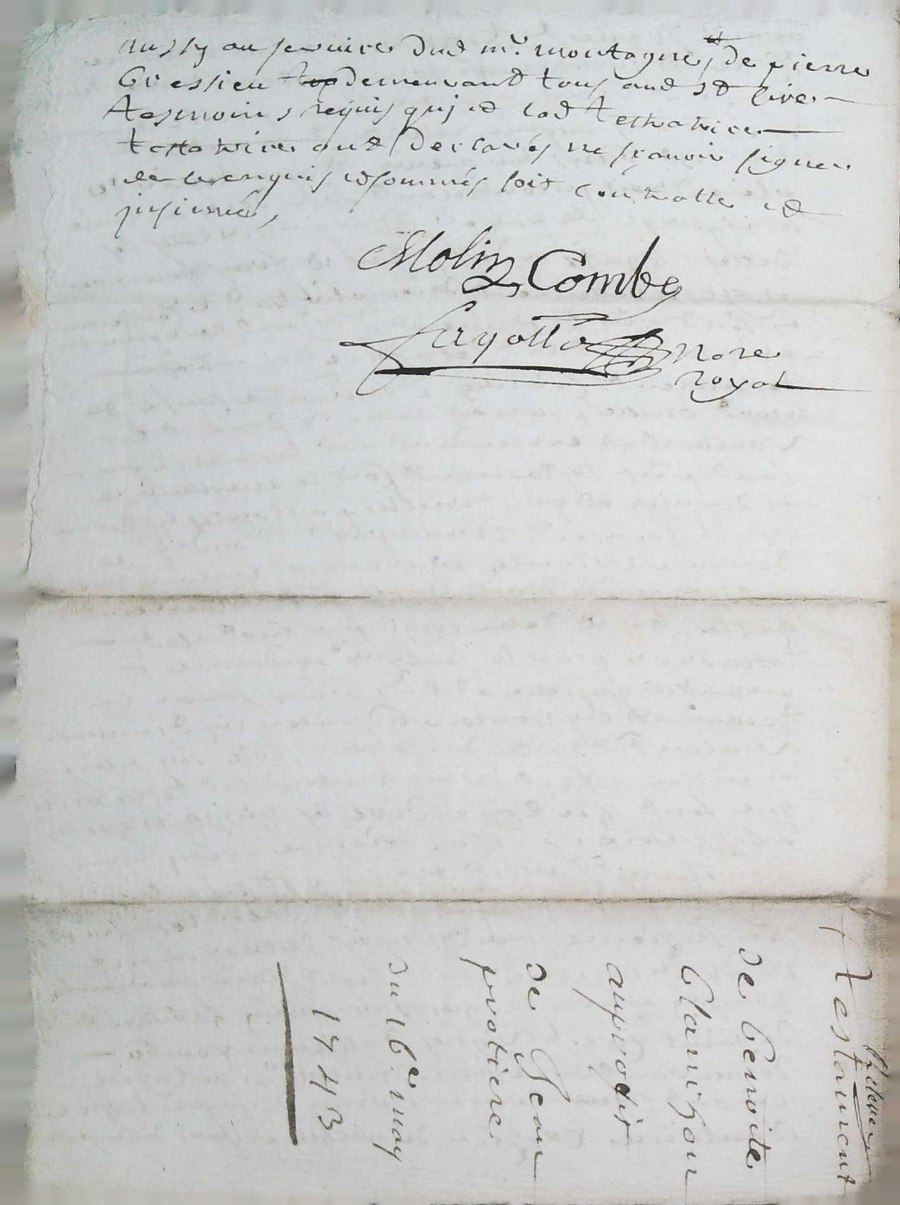 aussy au service dud mr. montagne, de pierre
Gressieu demeurant tous aud st live
tesmoins requis qui et lad testatrice
testatrice ont declarés ne sçavoir signer
de ce enquis et sommés soit controllé et
jnsinué,
Molin Combe
Fayolle nore
royal
Testament
de benoite
Clavizou
au profit
de Jean
du 16e may
1743